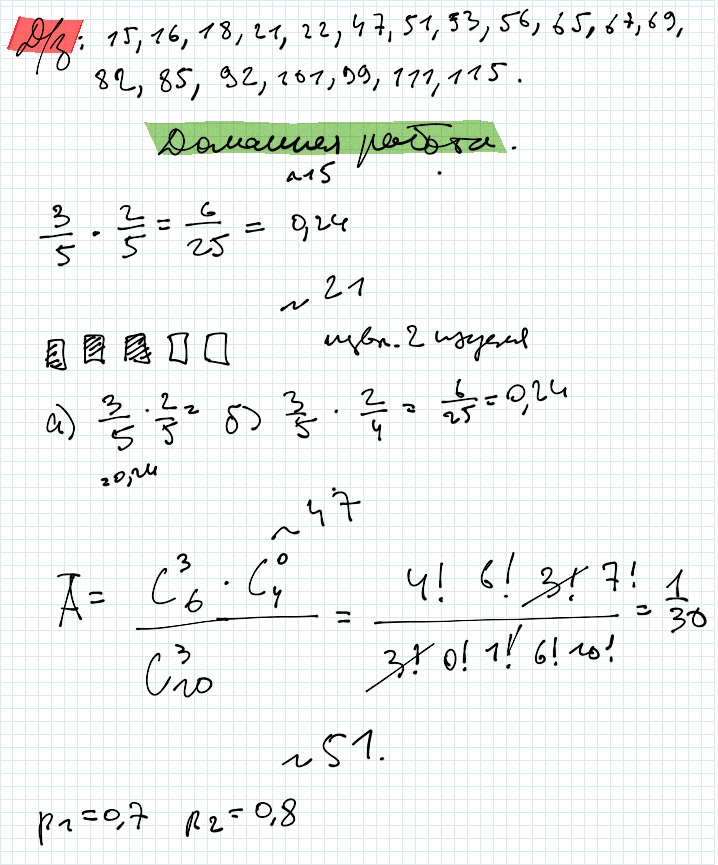 Д/з: 15, 16, 18, 21, 22, 47, 51, 53, 56, 65, 67, 69,
82, 85, 92, 101, 99, 111, 115.
Домашняя работа.
~15
3/5 · 2/5 = 6/25 = 0,24
~21
извл. 2 изделия
а) 3/5 · 2/5 = б) 3/5 · 2/4 = 6/25 = 0,24
=0,24
~47
Ā = (C_6^3 · C_4^0)/(C_10^3) = (4! 6! 3! 7!)/(3! 0! 1! 6! 10!) = 1/30
~51.
p1=0,7 p2=0,8